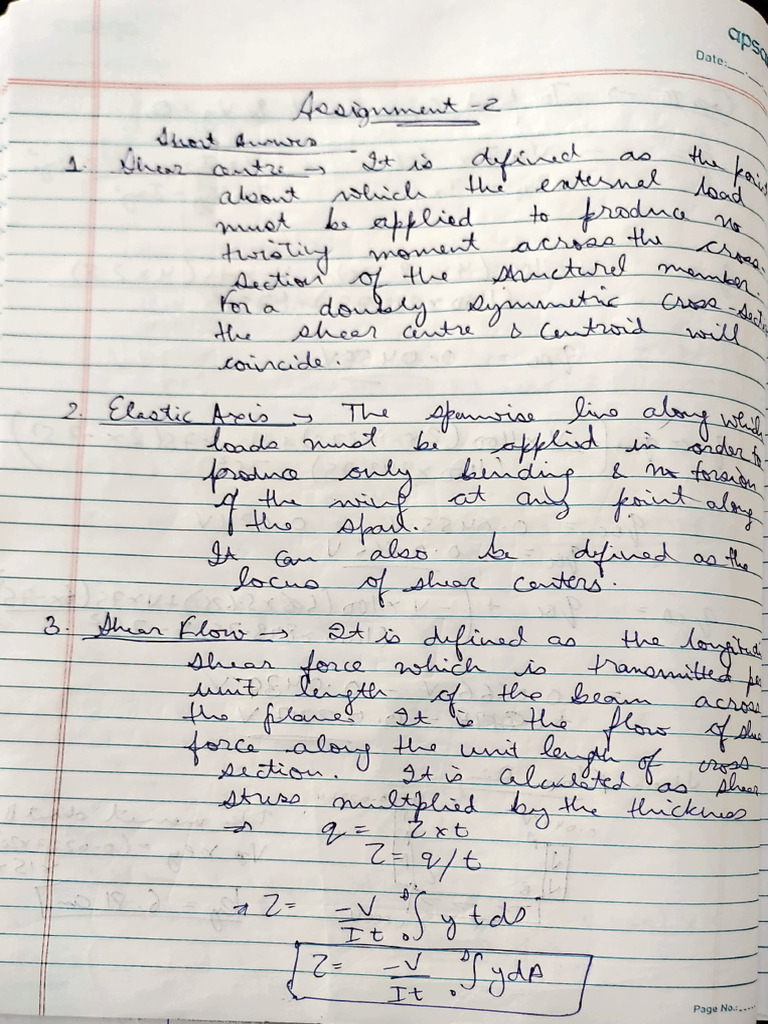 apsa
Date:
Assignment-2
Short Answers
1. Shear centre → It is defined as the point
about which the external load
must be applied to produce no
twisting moment across the cross-
section of the structural member.
For a doubly symmetric cross-secti
the shear centre & centroid will
coincide.
2. Elastic Axis → The spanwise line along which
loads must be applied in order to
produce only bending & no torsion
of the wing at any point along
the span.
It can also be defined as the
locus of shear centers.
3. Shear Flow → It is defined as the longitudi
shear force which is transmitted pe
unit length of the beam across
the plane. It is the flow of shea
force along the unit length of cross
section. It is calculated as shear
stress multplied by the thickness
⇒ q = τ x t
τ = q/t
⇒ τ = -V/It ₀∫ˢ y t ds
τ = -V/It ₀∫ˢ y dA
Page No.: